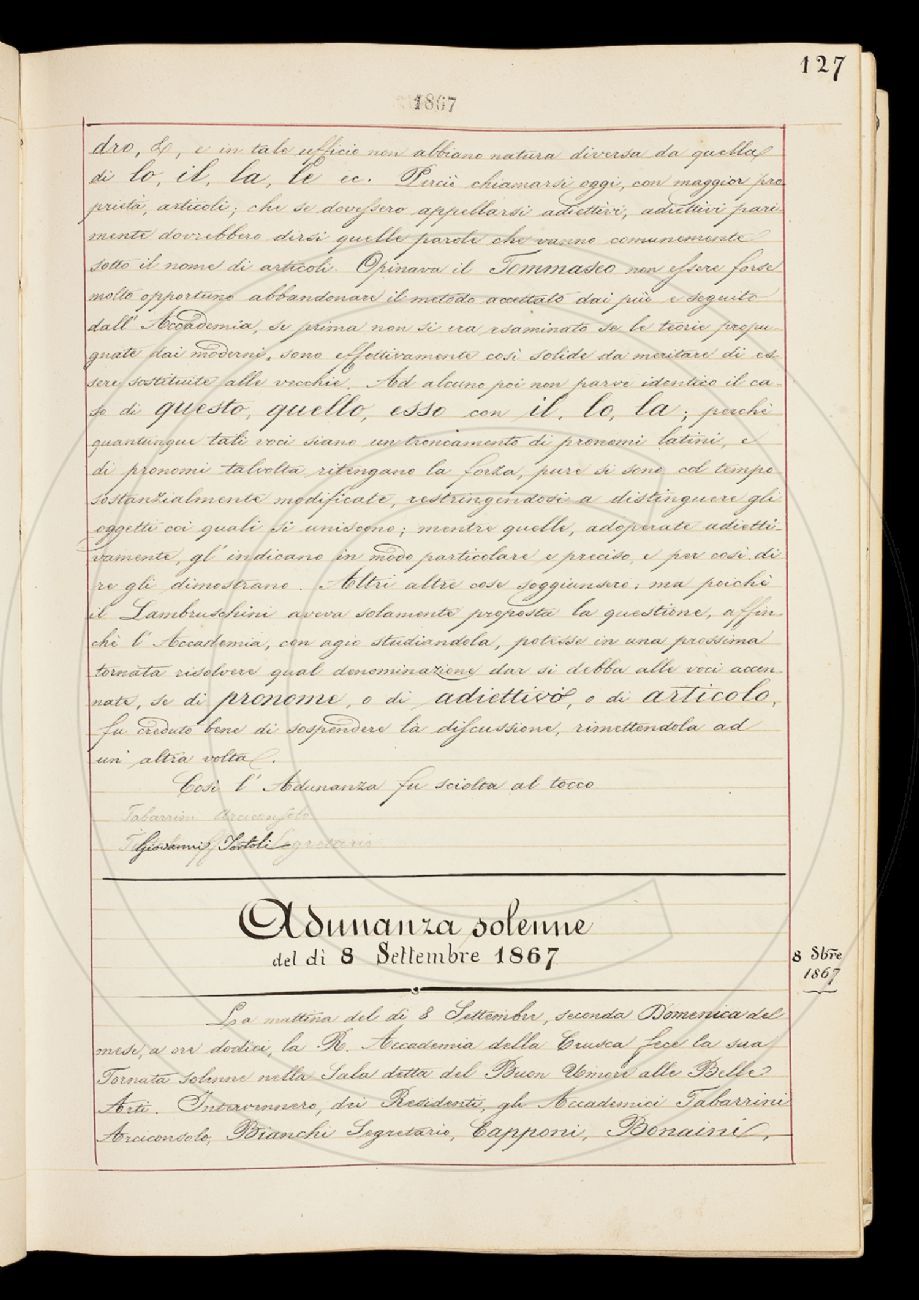 127
1867
dro, &, e in tale ufficio non abbiano natura diversa da quella
di lo, il, la, le ec. Perciò chiamarsi oggi, con maggior pro
prietà, articoli; che se dovessero appellarsi adiettivi, adiettivi pari
mente dovrebbero dirsi quelle parole che vanno comunemente
sotto il nome di articoli. Opinava il Tommaseo non essere forse
molto opportuno abbandonare il metodo accettato dai più e seguito
dall' Accademia, se prima non si era esaminato se le teorie propu-
gnate dai moderni, sono effettivamente così solide da meritare di es
sere sostituite alle vecchie. Ad alcuno poi non parve identico il ca-
so di questo, quello, esso con il, lo, la; perchè
quantunque tali voci siano un troncamento di pronomi latini, e
di pronomi talvolta ritengano la forza, pure si sono col tempo
sostanzialmente modificate, restringendosi a distinguere gli
oggetti coi quali si uniscono; mentre quelle, adoperate adietti-
vamente, gl' indicano in modo particolare e preciso, e per così di
re gli dimostrano. Altri altre cose soggiunsero; ma poichè
il Lambruschini aveva solamente proposta la questione, affin
chè l' Accademia, con agio studiandola, potesse in una prossima
tornata risolvere qual denominazione dar si debba alle voci accen
nate, se di pronome, o di adiettivo, o di articolo,
fu creduto bene di sospendere la discussione, rimettendola ad
un' altra volta.
Così l' Adunanza fu sciolta al tocco
Tabarrini Arciconsolo
Giovanni Tortoli Segretario
Adunanza solenne
del dì 8 Settembre 1867
8 Sbre
1867
La mattina del dì 8 Settembre, seconda Domenica del
mese, a ore dodici, la R. Accademia della Crusca fece la sua
Tornata solenne nella Sala detta del Buon Umore alle Belle
Arti. Intervennero, dei Residenti, gli Accademici Tabarrini
Arciconsolo, Bianchi Segretario, Capponi, Bonaini,